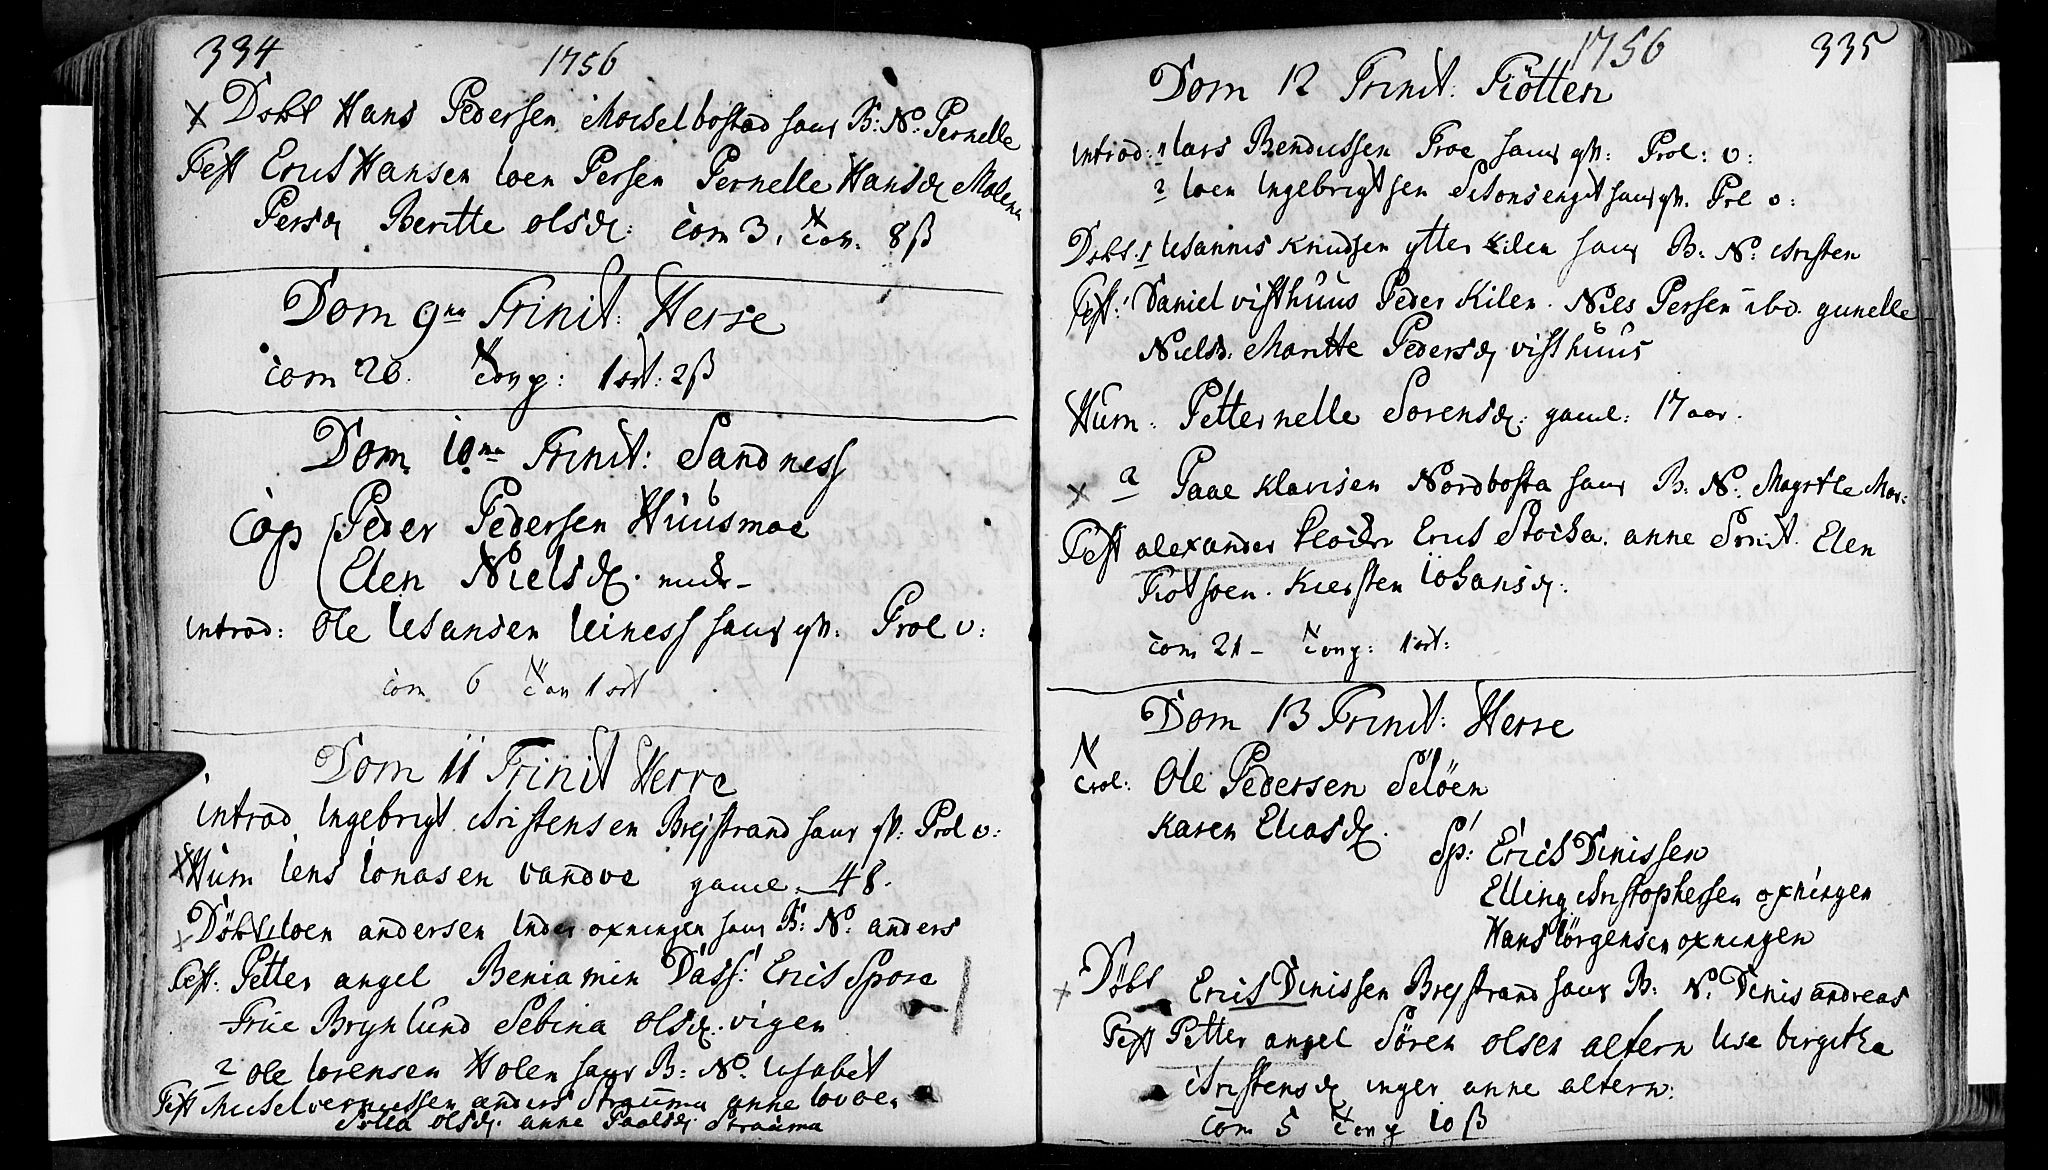 334 1756
Døbt Hans Pedersen Meiselbostad hans B: N: Pernelle
Test Erich Hansen Joen Persen Pernelle Hansd: Malena
Persd Beritte Olsd: Com 3, Con: 8 ß
Dom 9na Trinit: Herre
Com 20. Cong: 1 ort: 2 ß
Dom 10ma Trinit: Sandness
Cop Peder Pedersen Huusmoe
Elen Nielsd:
Introd: Ole Leiness hans qv: Præl v:
Com 6 Con 1 ort
Dom 11 Trinit Herre
Introd Ingebrigt Christensen Brejstrand hans qv: Præl v:
Hum Jens Jonasen Vandve gamel 48.
Døbt 1 Joen Andersen Inder Oxningen hans B: N: Anders
Test: Petter Angel Beniamin Dass: Erich Spora
Frue Brynlund Sebina Olsd: Vigen
2 Ole Lorensen Holen hans B: N: Lisabet
Test Michel Anders Strauma Anne
Olsd: Anne Paalsd: Strauma
1756 335
Dom 12 Trinit: Tiøtten
Introd: 1 Lars Bendixsen Troe hans qv: Præl: v:
2 Joen Ingebrigtsen hans qv. Prel v:
Døbt. 1 Knudsen Ytter Kilen hans B: N: Christen
Test: Daniel Visthuus Peder Kilen. Niels Persen ibd. Gunelle
Nielsd: Maritte Pedersd Visthuus
Hum: Petternelle Sorensd: gamel: 17 aar.
2 Paae Klavisen Nordbosta hans B: N: Magrete
Test Alexander Erich Anne Elen
Kiersten Johansd:
Com 21 - Cong: 1 ort:
Dom 13 Trinit: Herre
Trol: Ole Pedersen Seløen
Karen Eliasd:
Sp: Erich Dinissen
Elling Christophersen Oxningen
Hans Jørgensen Oxningen
Døbt Erich Dinissen Brejstrand hans B: N: Dinis Andreas
Test Petter Angel Søren Olsen Alfern Lise Birgitha
Christensd Inger Anne Alfern:
Com 5 Cong 10 ß